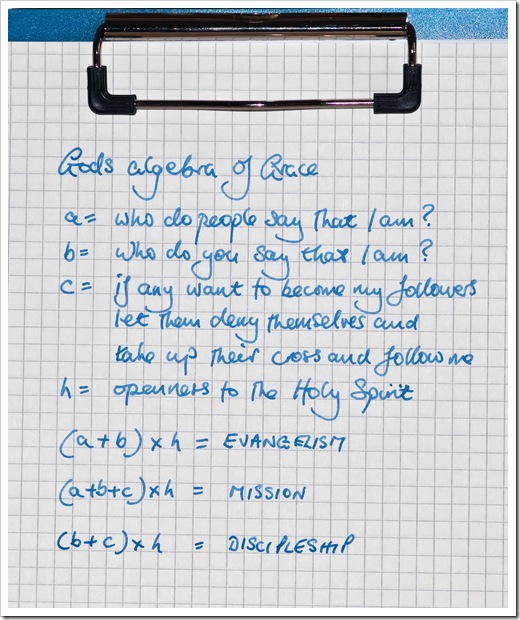 Gods algebra of Grace
a = who do people say that I am?
b = who do you say that I am?
c = if any want to become my followers
let them deny themselves and
take up their cross and follow me
h = openness to the Holy Spirit
(a+b) × h = EVANGELISM
(a+b+c) × h = MISSION
(b+c) × h = DISCIPLESHIP